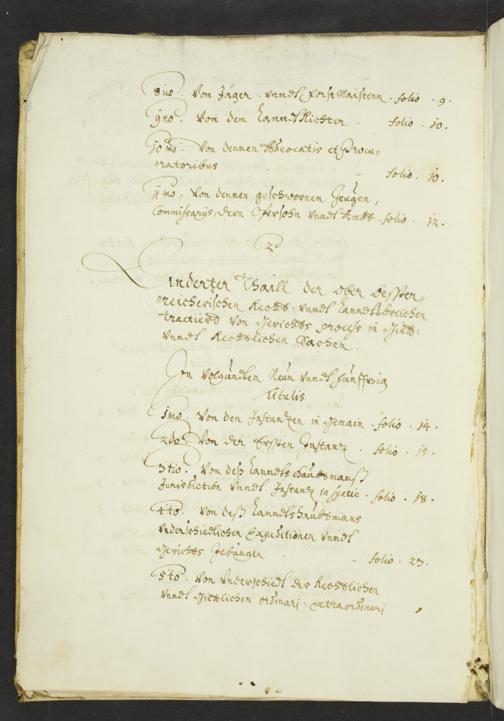 8uo. Von Jäger. vnndt ForstMaistern. folio. 9.
9no. Von dem LanndtRichter. folio. 10.
10mo. Von dennen Advocatis et Procu=
ratoribus folio. 10.
11mo. Von dennen geschwornen Zeugen,
Commissarÿs, deren Persohn vnndt Ambt. folio. 12.
2
Anderter Thaill der Ober Össter=
reicherischen Recht= vnndt Lanndtsbreichen
tractiert von Gerichts process in Gütt=
vnndt Rechtlichen Sachen.
In volgunden Neün vnndt fünffzig
titulis
1mo. Von den Instantzen in gemain. folio. 14.
2do. Von der Ersten Instantz. folio. 15.
3tio. Von deß Lanndts Haubtmanß
Jurisdiction vnndt Instantz in specie. folio. 18.
4to. Von deß Lanndtshaubtmans
vnderschiedlichen Expeditionen vnndt
Gerichts folio. 23.
5to. Von Vnderschiedt der Rechtlichen
vnndt Güettlichen ordinari. Extraordinari